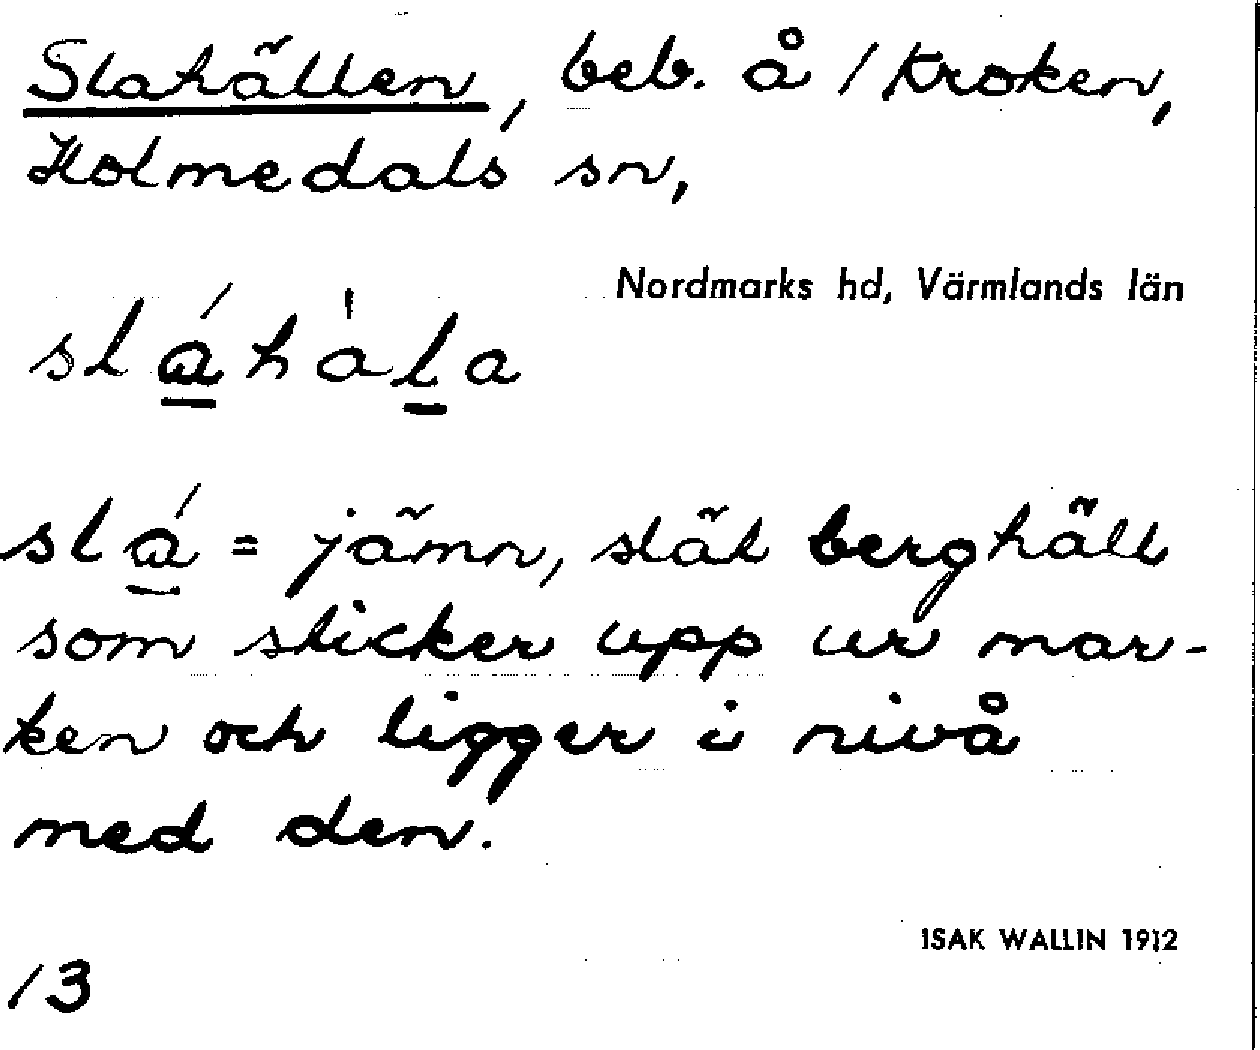 Slahällen, beb. å 1/ Kroken,
Holmedals sn,
Nordmarks hd, Värmlands län
slá̱hàḻa
slá̱ = jämn, slät berghäll
som sticker upp ur mar-
ken och ligger i nivå
med den.
ISAK WALLIN 1912
13